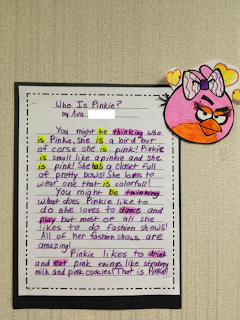 Who Is Pinkie?
by Ava
You might be thinking who
is Pinkie, She is a bird but
of corse she is pink! Pinkie
is small like a pinkie and she
is pink! She has a closet full
of pretty bows! She loves to
wear one that is colorfull!
You might be thinking
what does Pinkie like to
do she loves to dance and
play but most or all she
likes to do fashion shows!
All of her fashion shows are
amazing!
Pinkie likes to drink
and eat pink things like strabery
milk and pink cookies! That is Pinkie!